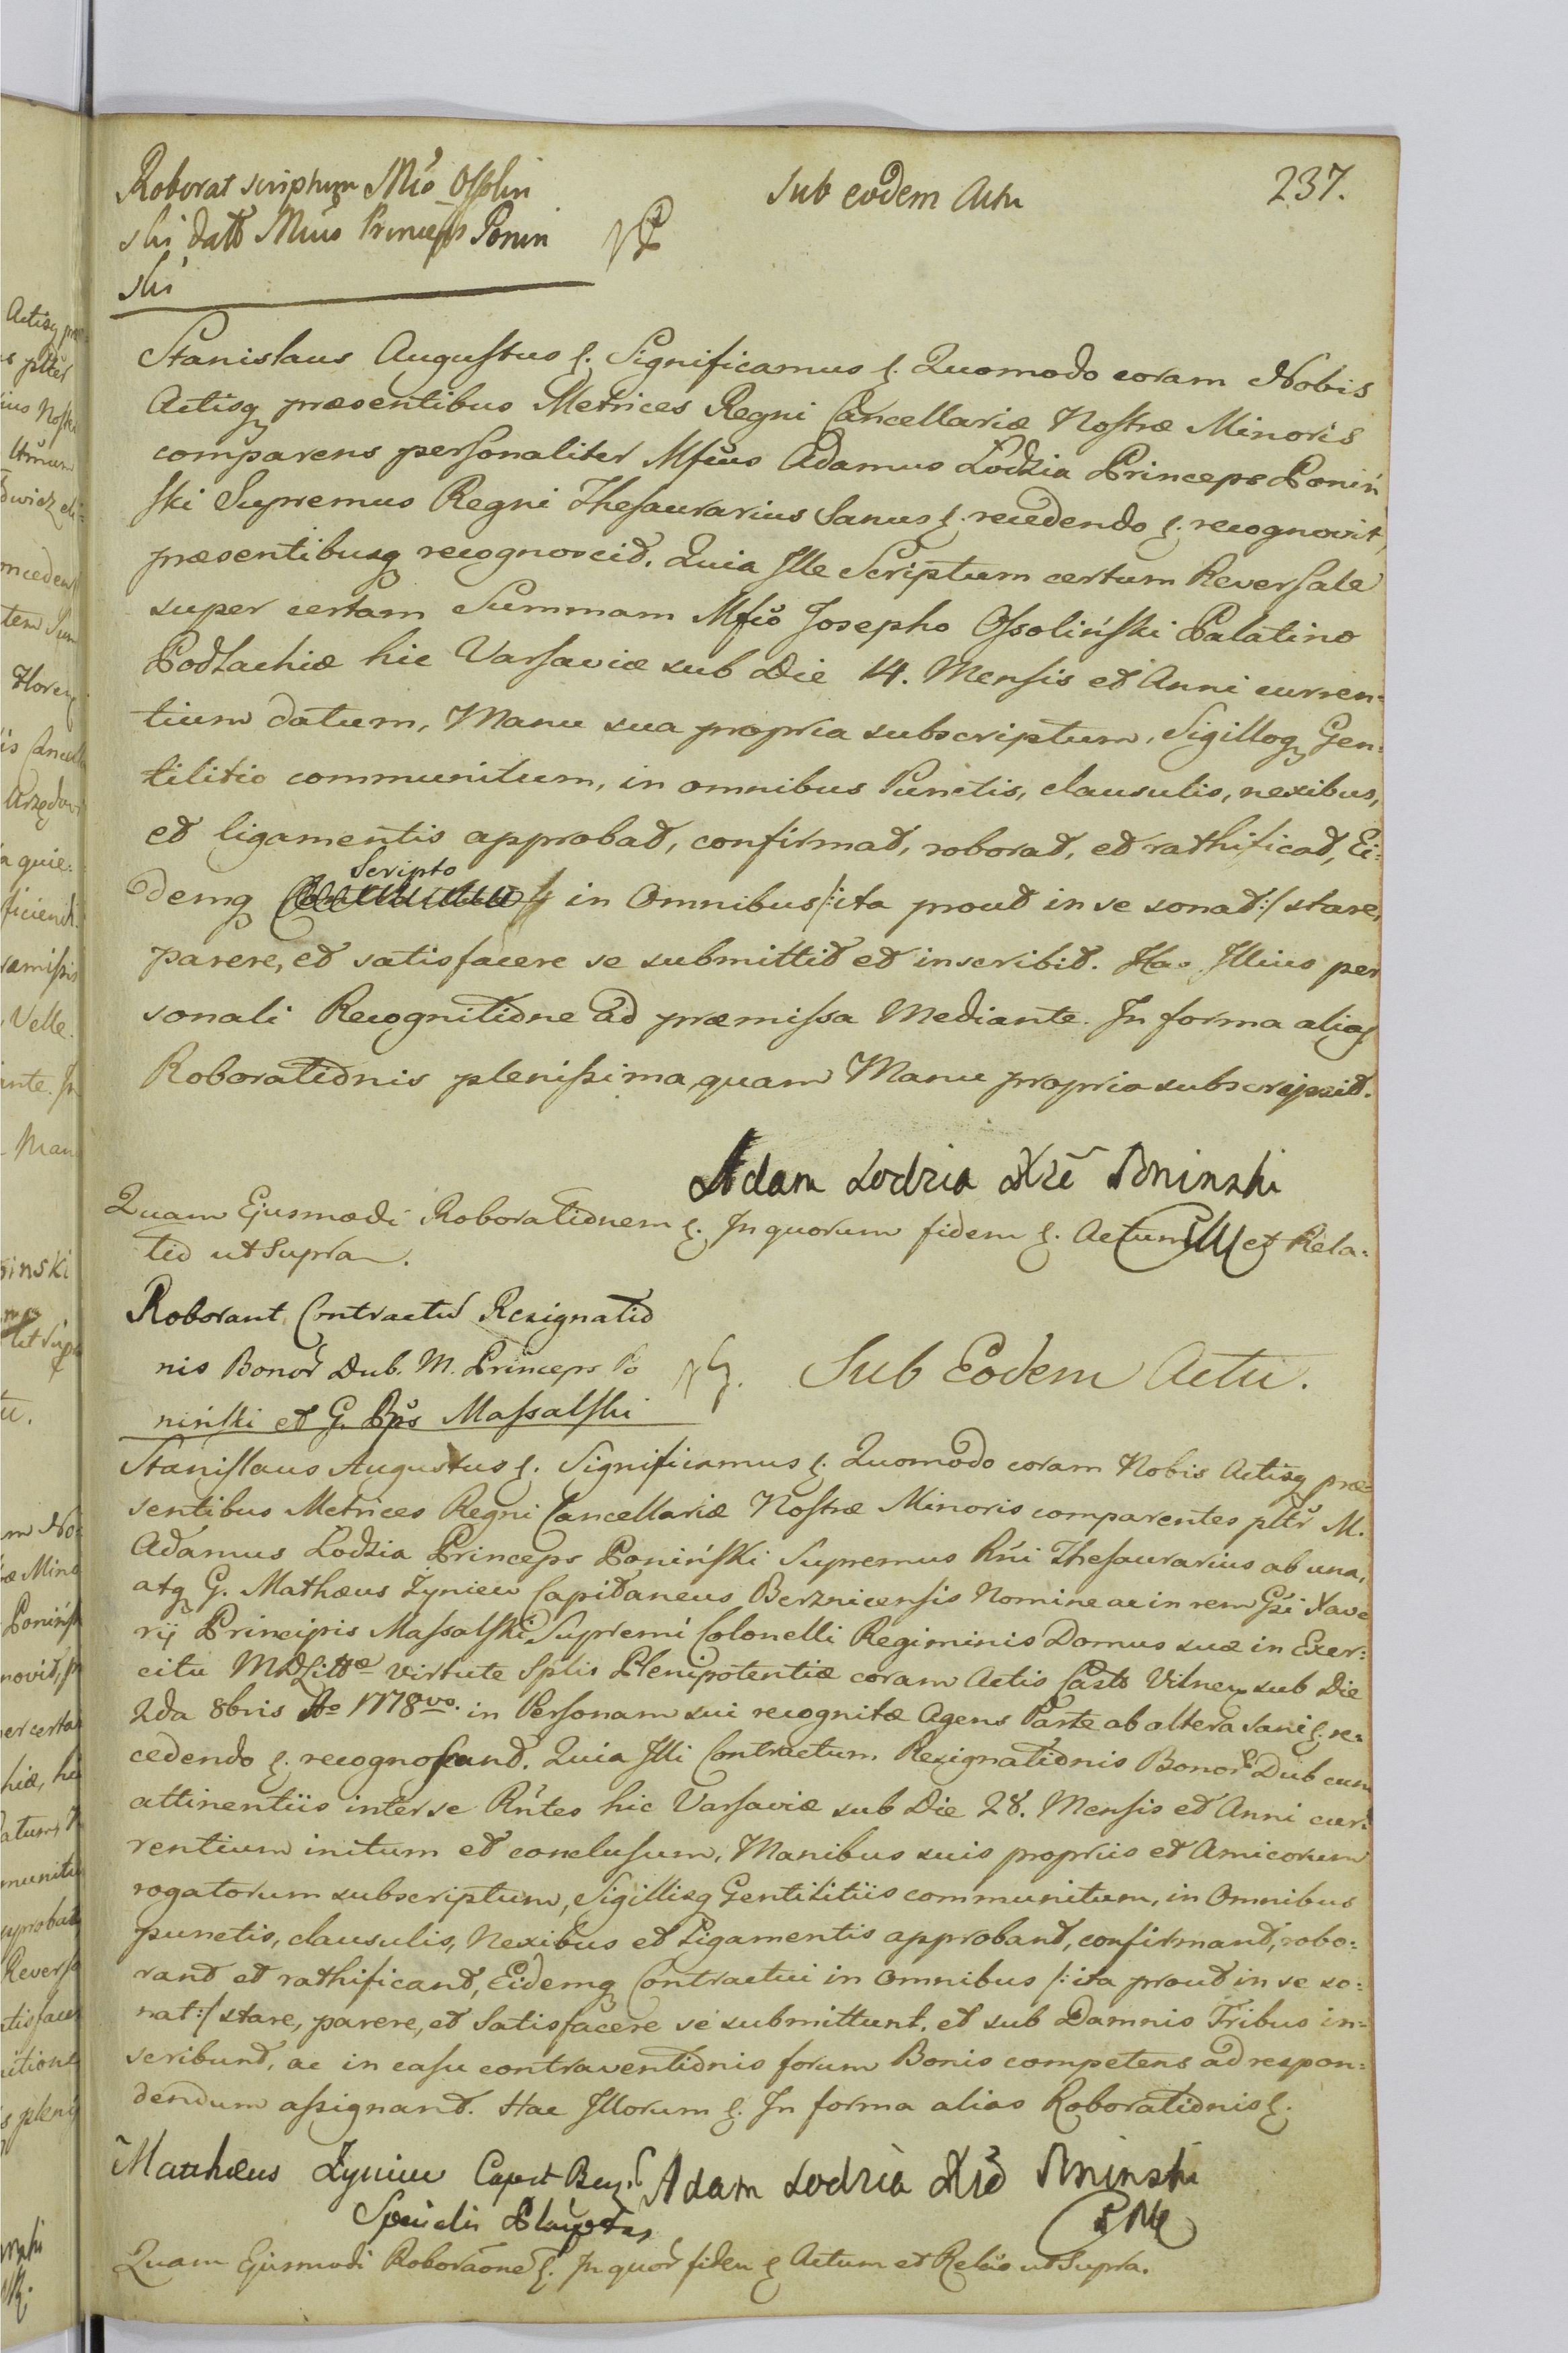 237.
Sub eodem Actu
Roborat scriptum Mfco Ossolin
ski datt Mfcus Princeps Ponin
ski
Stanislaus Augustus &. Significamus &. Quomodo coram Nobis
Actisq præsentibus Metrices Regni Cancellariæ Nostræ Minoris
comparens personaliter Mfcus Adamus Łodzia Princeps Poniń
ski Supremus Regni Thesaurarius Sanus &. recedendo &. recognovit,
præsentibusq recognoscit. Quia Ille Scriptum certum Reversale
super certam Summam Mfco Josepho Ossoliński Palatino
Podlachiæ hic Varsaviæ sub Die 14. Mensis et Anni curren=
tium datum, Manu sua propria subscriptum, Sigilloq Gen=
tilitio communitum, in omnibus Punctis, clausulis, nexibus,
et ligamentis approbat, confirmat, roborat, et rathificat, Ei=
demq Scripto in Omnibus /:ita prout in se sonat:/ stare,
parere, et satisfacere se submittit et inscribit. Hac Illius per
sonali Recognitione ad præmissa Mediante. In forma alias
Roborationis plenissima, quam Manu propria subscripsit.
Adam Lodzia Xże Poninski
Quam Ejusmodi Roborationem &. In quorum fidem &. Actum et Rela=
tio ut Supra.
Roborant Contractus Resignatio
nis Bonor Dub. M. Princeps Po
niński et G. Pps Massalski
Sub Eodem Actu.
Stanislaus Augustus &. Significamus &. Quomodo coram Nobis Actisq præ=
sentibus Metrices Regni Cancellariæ Nostræ Minoris comparentes pltr M.
Adamus Łodzia Princeps Poniński Supremus Rni Thesaurarius ab una,
atq G. Mathæus Zyniew Capitaneus Berznicensis Nomine ac in rem Gsi Xave
rij Principis Massalski Supremi Colonelli Regiminis Domus suæ in Exer=
citu MDLittæ virtute Splis Plenipotentiæ coram Actis Casts Vilnen sub Die
2da 8bris Ao 1778vo. in Personam sui recognitæ Agens Parte ab altera Sani &. re=
cedendo &. recognoscunt. Quia Illi Contractum Resignationis Bonor Dub cum
attinentiis inter se Rntes hic Varsaviæ sub Die 28. Mensis et Anni cur=
rentium initum et conclusum, Manibus suis propriis et Amicorum
rogatorum subscriptum, Sigillisq Gentilitiis communitum, in Omnibus
punctis, clausulis, Nexibus et Ligamentis approbant, confirmant, robo=
rant et rathificant, Eidemq Contractui in Omnibus /:ita prout in se so=
nat:/ stare, parere, et Satisfacere se submittunt, et sub Damnis Tribus in=
scribunt, ac in casu contraventionis forum Bonis competens ad respon=
dendum assignant. Hac Illorum &. In forma alias Roborationis &.
Matthæus Zyniew Adam Lodzia Xże Poninski
Quam Ejusmodi Roboraone &. In quor fidem & Actum et Relio ut Supra.